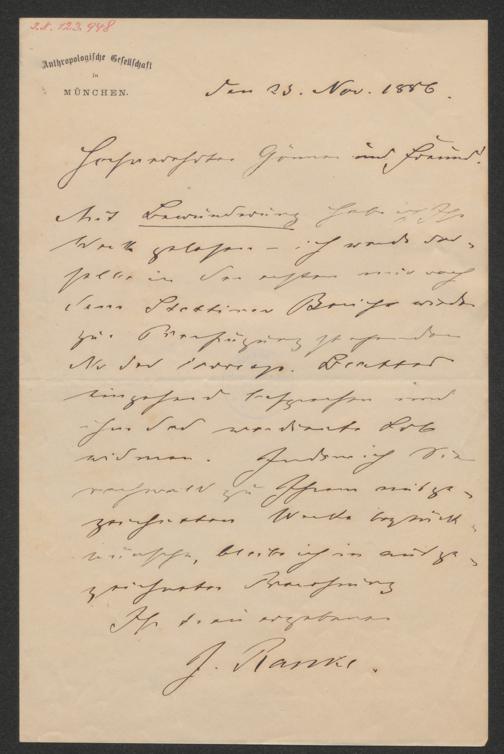 28.123.448
Anthropologische Gesellschaft
in
MÜNCHEN.
den 23. Nov. 1886.
Hochverehrter Gönner und Freund!
Mit Bewunderung habe ich Ihr
Werk gelesen – ich werde das-
selbe in der ersten mir nach
dem Stettiner Bericht wieder
zur Verfügung stehenden
No des Corresp. Blattes
eingehend besprechen und
ihm das verdiente Lob
widmen. Indem ich Sie
zu Ihrem ausge-
zeichneten Werke beglück-
wünsche, bleibe ich in ausge-
zeichneter Verehrung
Ihr treu ergebener
J. Ranke.